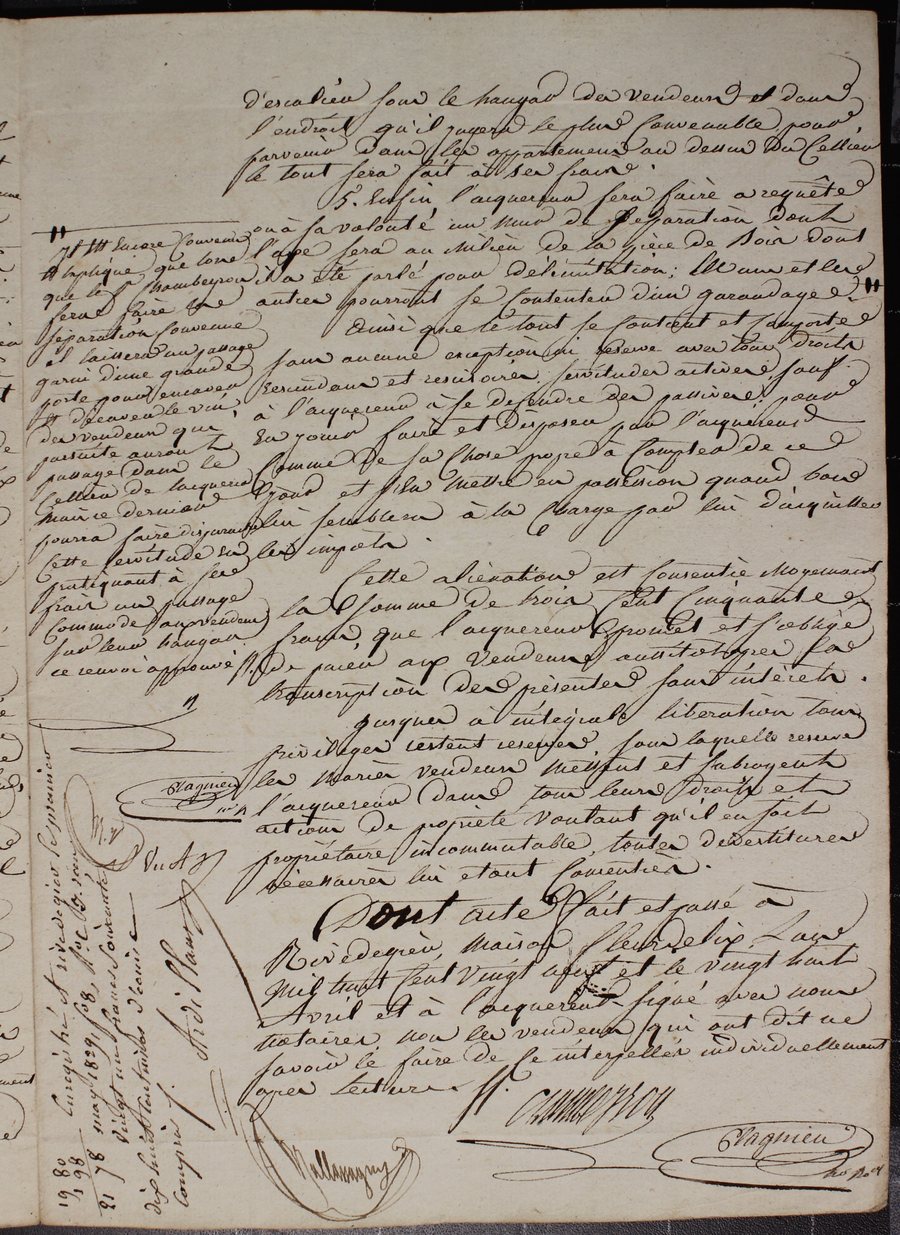 d'escalier sous le hangar des vendeurs et dans
l'endroit qu'il jugera le plus convenable pour
parvenir dans les appartemens au dessus du Cellier
le tout sera fait à ses frais.
5. Enfin l'acquereur fera faire a requête
ou à sa volonté un mur de séparation dont
l'axe sera au milieu de la pièce de bois dont
il a été parlé pour délimitation; les uns et les
autres pourront se contenter d'un garandage "
Ainsi que le tout se contient et comporte
sans aucune exception ni réserve avec tous droits
rescindans et rescisoires, servitudes actives sauf
à l'acquereur à se defendre des passives, pour
en jouir faire et disposer par l'acquereur
comme de sa chose propre à compter de ce
jour et s'en mettre en possession quand bon
lui semblera à la charge par lui d'acquitter
les impots.
Cette aliénation est consentie moyennant
la somme de trois cent cinquante
francs que l'acquereur promet et s'oblige
de paier aux vendeurs aussitot après la
transcription des présentes sans intérêts.
Jusques à intégrale libération tous
privilèges restent reservés, sous laquelle reserve
les mariés vendeurs mettent et subrogent
l'acquereur dans tous leurs droits et
actions de propriété voulant qu'il en soit
propriétaire incommutable, toutes devestitures
nécessaires lui etant consenties.
Dont acte fait et passé à
Rivedegier, maison fleurdelix, L'an
mil huit cent vingt neuf et le vingt huit
Avril et à l'acquereur signé avec nous
notaires, non les vendeurs qui ont dit ne
savoir le faire de ce interpellés individuellement
après lecture.
"
Encore convenu
expliqué que lors
que le Sr. Chambeyron
fera faire le
séparation convenue
il laissera un passage
garni d'une grande
porte pour encaver
et décaver le vin
des vendeurs qui
par suite auront
passage dans le
Cellier de l'acquereur
mais ce dernier
pourra faire disparaitre
cette servitude en
pratiquant à ses
frais un passage
commode aux vendeurs
sur leur hangar
ce renvoi approuvé
Plagnieu
Vu
Enregistré à rivedegier le premier
may 1829 fo. 68
vingt un francs soixante
dix huit centimes décime
compris.
19 80
1 98
21 78
Plagnieu